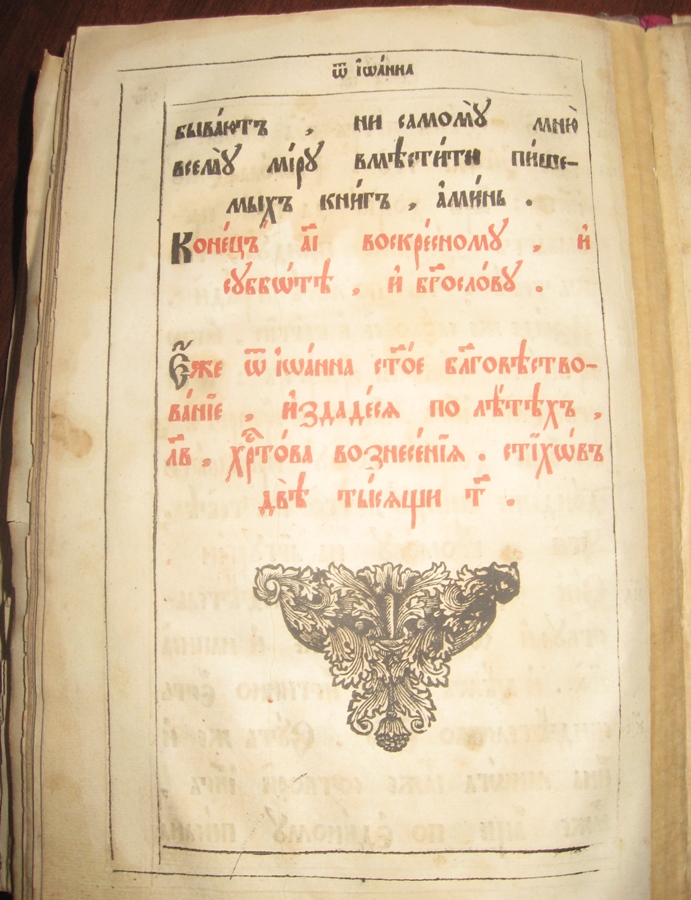 ѿ і҆ѡа́нна
быва́ютъ , ни самомꙋ̀ мню̀
всемꙋ̀ мі́рꙋ вмѣсти́ти пи́ше-
мыхъ кни́гъ , а҆ми́нь .
Коне́цъ а҃і воскре́сномꙋ , и҆
сꙋббѡ́тѣ , и҆ бг҃осло́вꙋ .
Є҆́же ѿ і҆ѡа́нна ст҃о́е бл҃говѣство-
ва́нїе , и҆здаде́сѧ по лѣ́тѣхъ ,
л҃в , хрⷭ҇то́ва вознесе́нїѧ . стїхѡ́въ
двѣ̀ ты́сѧщи т҃ .